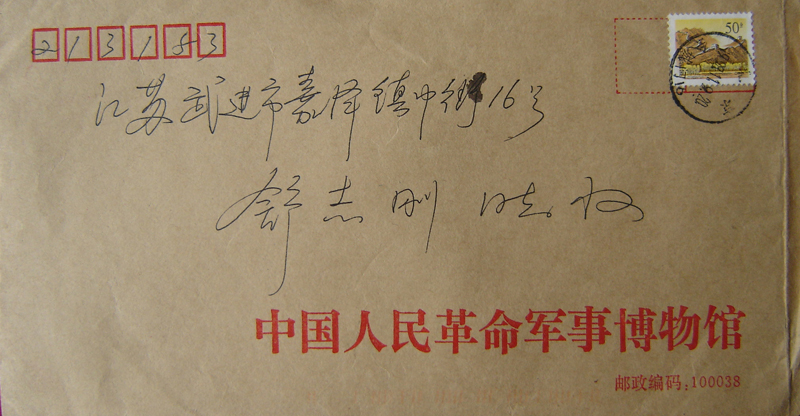 213153
50分
江苏武进市嘉泽镇中街16号
舒志刚 晓收
中国人民革命军事博物馆
邮政编码:100038